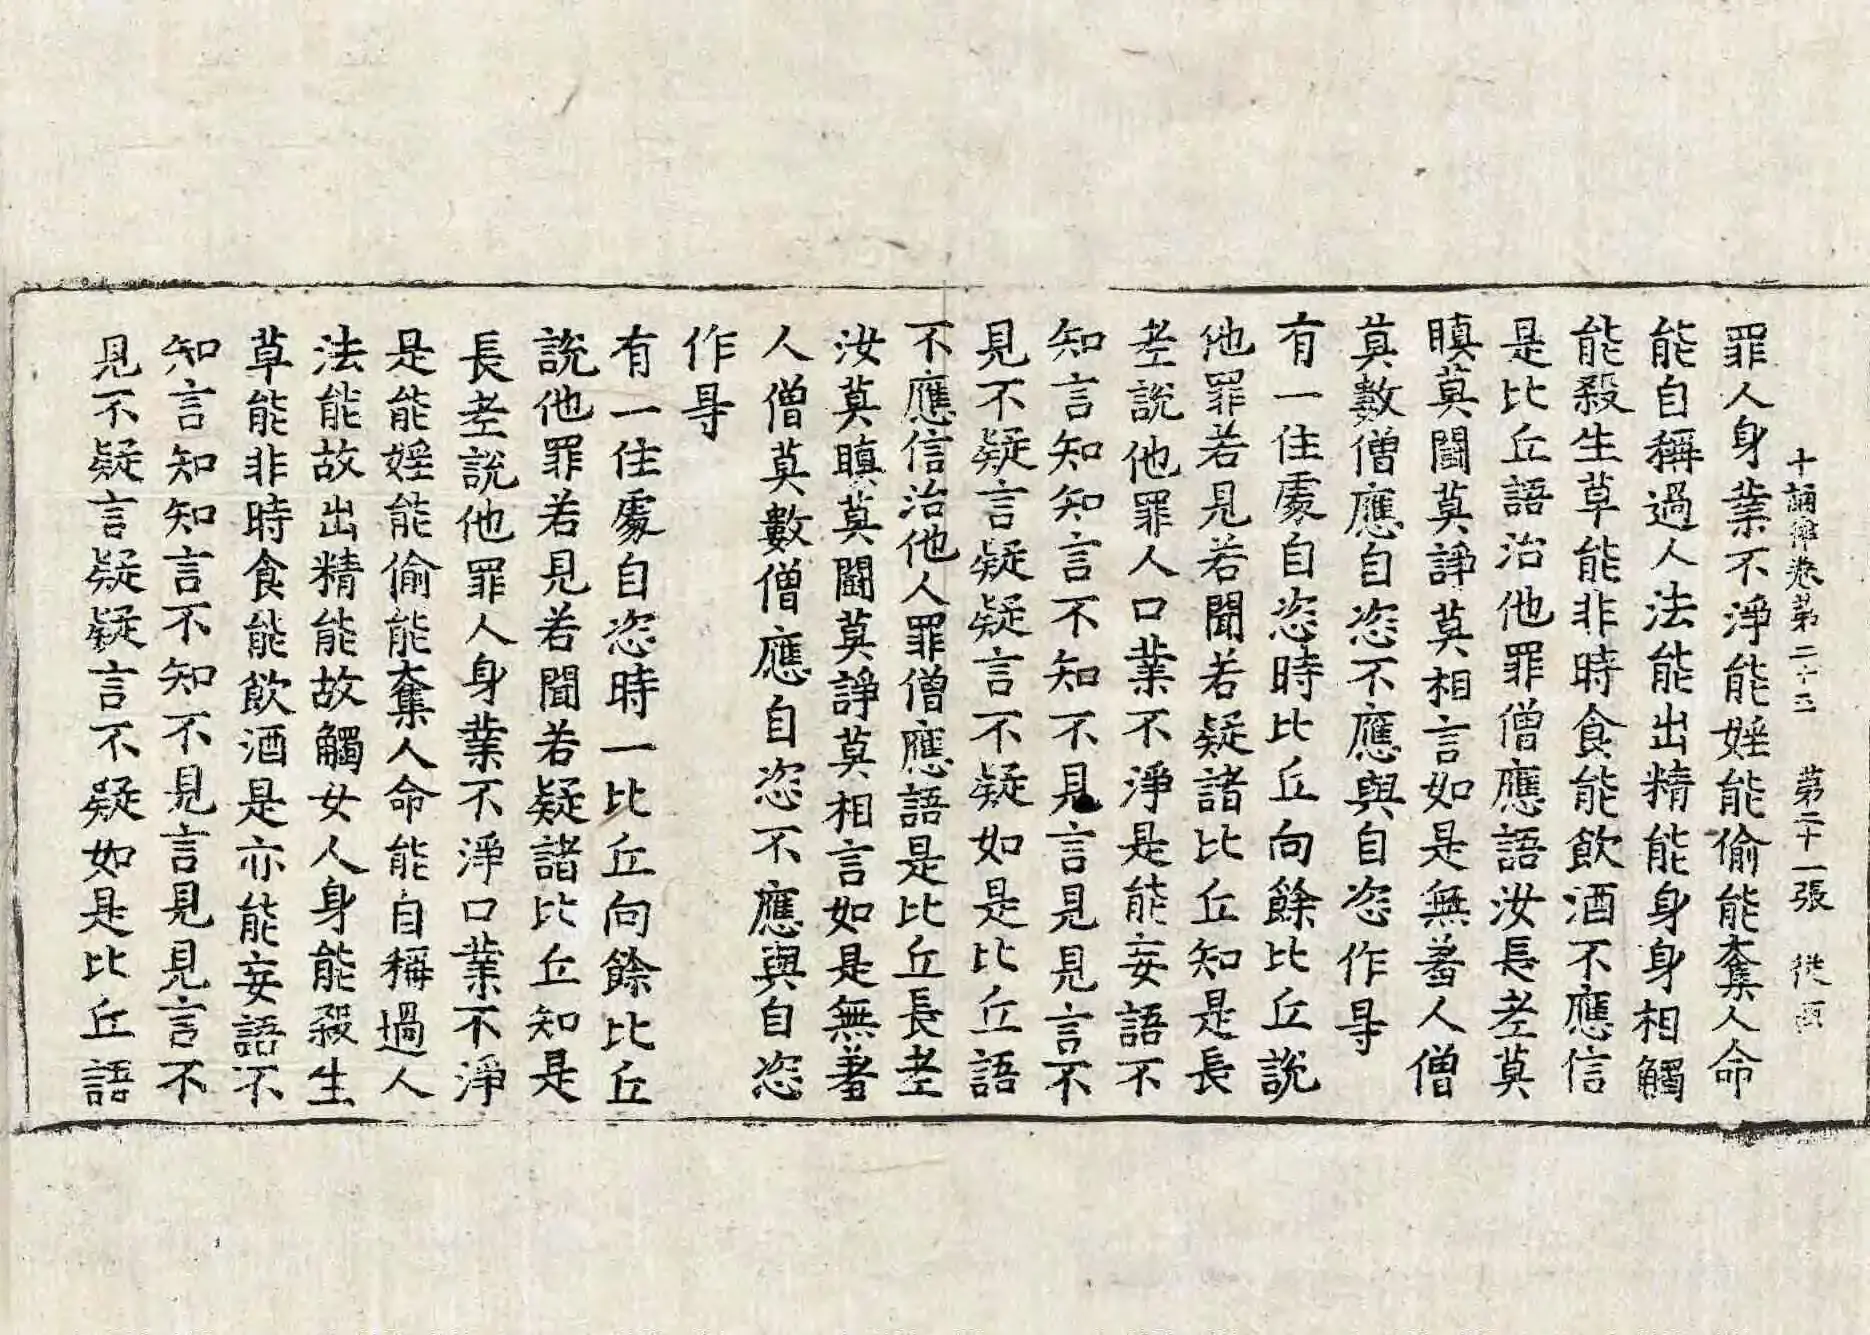 十誦律卷第二十三　第二十一張　從
罪人身業不淨能婬能偷能奪人命
能自稱過人法能出精能身身相觸
能殺生草能非時食能飲酒不應信
是比丘語治他罪僧應語汝長老莫
瞋莫鬪莫諍莫相言如是無羞人僧
莫數僧應自恣不應與自恣作㝵
有一住處自恣時比丘向餘比丘說
他罪若見若聞若疑諸比丘知是長
老說他罪人口業不淨是能妄語不
知言知知言不知不見言見見言不
見不疑言疑疑言不疑如是比丘語
不應信治他人罪僧應語是比丘長老
汝莫瞋莫鬪莫諍莫相言如是無羞
人僧莫數僧應自恣不應與自恣
作㝵
有一住處自恣時一比丘向餘比丘
說他罪若見若聞若疑諸比丘知是
長老說他罪人身業不淨口業不淨
是能婬能偷能奪人命能自稱過人
法能故出精能故觸女人身能殺生
草能非時食能飲酒是亦能妄語不
知言知知言不知不見言見見言不
見不疑言疑疑言不疑如是比丘語